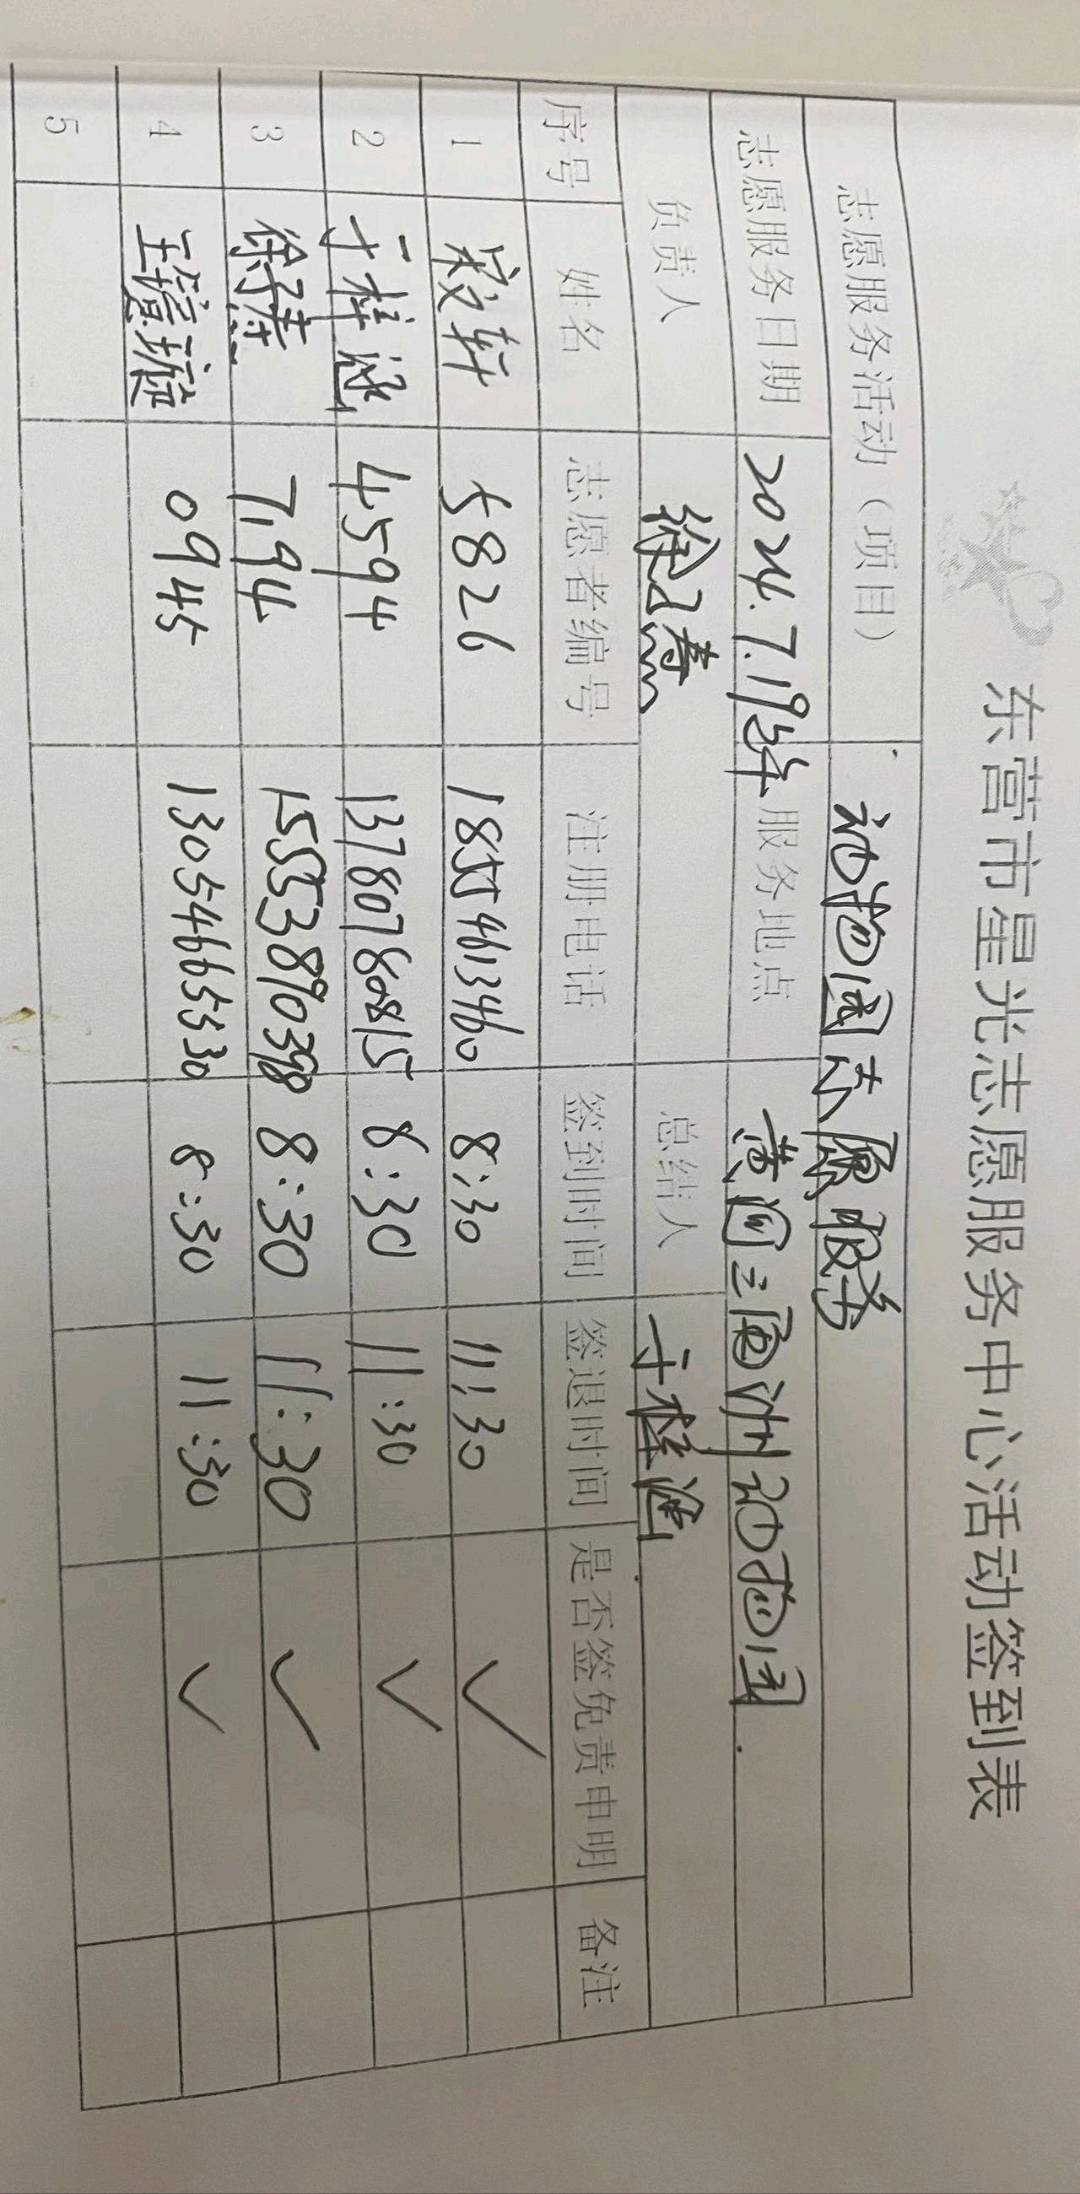 东营市星光志愿服务中心活动签到表
志愿服务活动（项目） 动物园志愿服务
志愿服务日期 2024.7.19 服务地点 黄河三角洲动物园
负责人 总结人 于梓涵
序号 姓名 志愿者编号 注册电话 签到时间 签退时间 是否签免责申明 备注
1 5826 18554613460 8:30 11:30 ✓
2 于梓涵 4594 13780780815 8:30 11:30 ✓
3 7194 15553890398 8:30 11:30 ✓
4 0945 13054665530 8:30 11:30 ✓
5